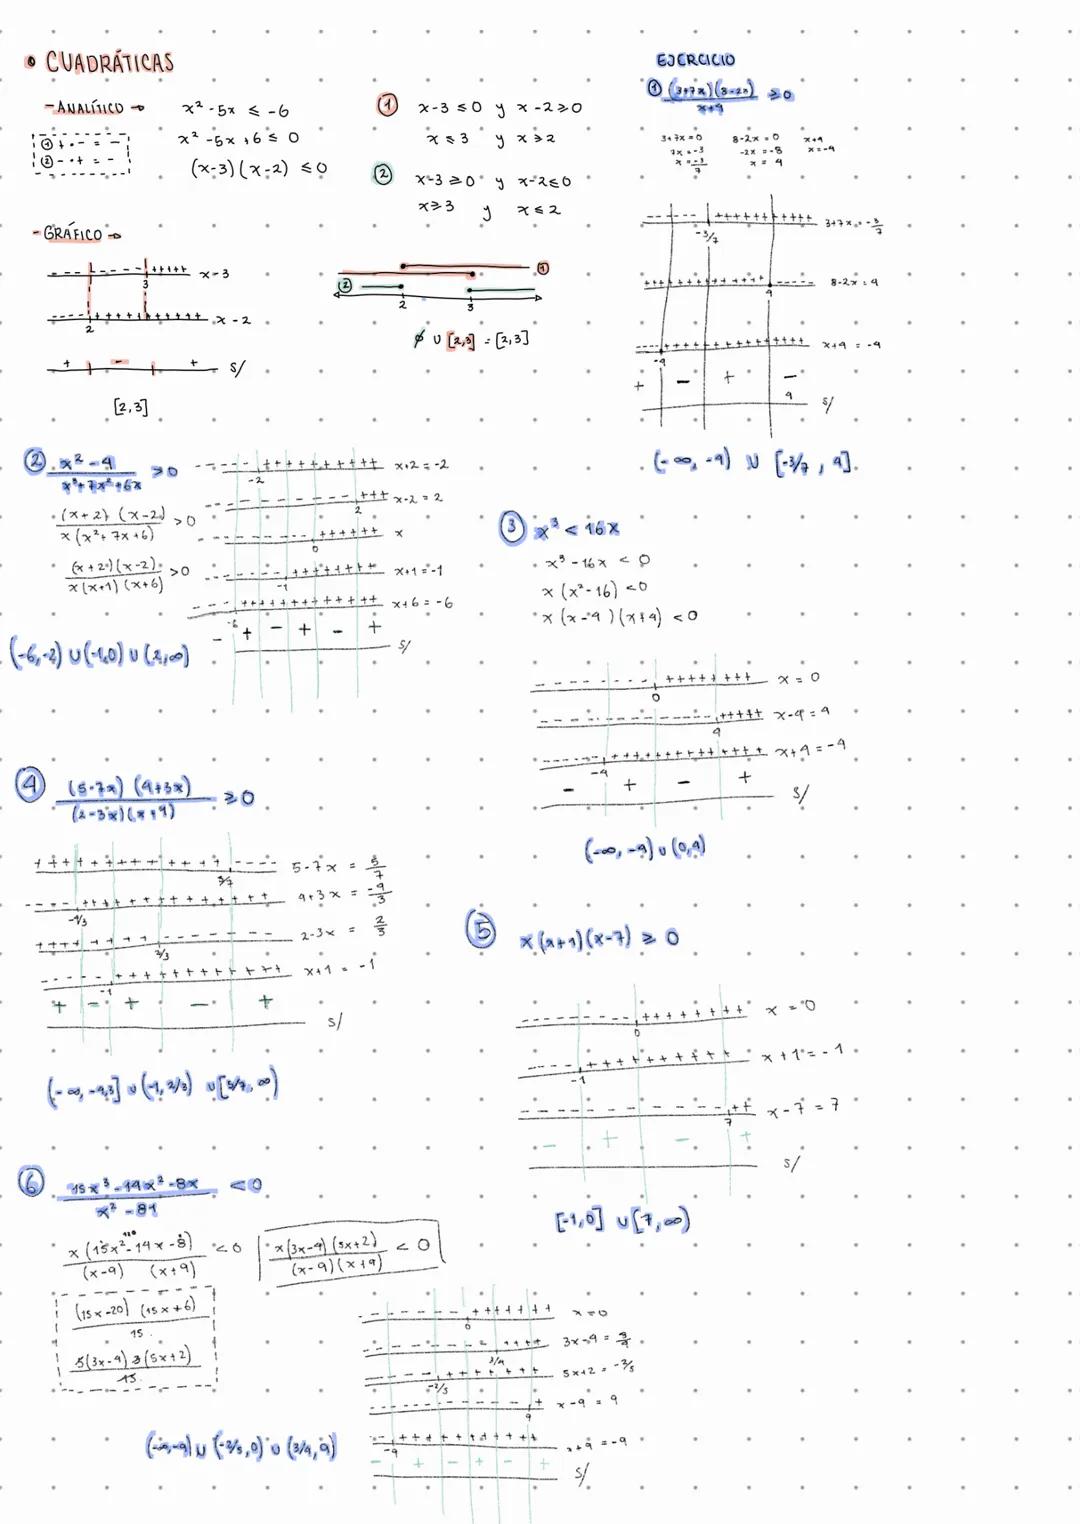 • CUADRÁTICAS
- ANALÍTICO →
① + · - = -
② - · + = -
x² - 5x ≤ -6
x² - 5x + 6 ≤ 0
(x-3)(x-2) ≤ 0
① x-3 ≤ 0 y x-2 ≥ 0
x ≤ 3 y x ≥ 2
② x-3 ≥ 0 y x-2 ≤ 0
x ≥ 3 y x ≤ 2
- GRÁFICO →
- - - - - - - + + + + + x-3
3
- - - - + + + + + + + + + x-2
2
+ - + S/
[2,3]
①
②
2 3
∅ ∪ [2,3] = [2,3]
EJERCICIO
① (3+7x)(8-2x) ≥ 0
x+4
3+7x=0 8-2x=0 x+4
7x=-3 -2x=-8 x=-4
x=-3/7 x=4
- - - - - + + + + + + + + + 3+7x = -3/7
-3/7
+ + + + + + + + + + + - - - - - 8-2x = 4
4
- - - - + + + + + + + + + + + x+4 = -4
-4
+ - + -
4 S/
(-∞, -4) ∪ [-3/7, 4]
② x² - 4 > 0
x³+7x²+6x
(x+2)(x-2) > 0
x(x²+7x+6)
(x+2)(x-2) > 0
x(x+1)(x+6)
- - - - - + + + + + + + + + + x+2 = -2
-2
- - - - - - - - - - + + + x-2 = 2
2
- - - - - - - + + + + + + x
0
- - - - - - + + + + + + + + x+1 = -1
-1
- - - + + + + + + + + + + + + x+6 = -6
-6
- + - + - +
S/
(-6,-2) ∪ (-1,0) ∪ (2,∞)
③ x³ < 16x
x³ - 16x < 0
x(x²-16) < 0
x(x-4)(x+4) < 0
- - - - - - - - - + + + + + + + + x = 0
0
- - - - - - - - - - - - - + + + + + x-4 = 4
4
- - - - - - + + + + + + + + + + + + x+4 = -4
-4
- + - +
S/
(-∞, -4) ∪ (0,4)
④ (5-7x)(4+3x) ≥ 0
(2-3x)(x+1)
+ + + + + + + + + + + + - - - - 5-7x = 5/7
5/7
- - - - + + + + + + + + + + + + + 4+3x = -4/3
-4/3
+ + + + + + + + - - - - - - - 2-3x = 2/3
2/3
- - - - - + + + + + + + + + + + x+1 = -1
-1
+ - + - +
S/
(-∞, -4/3] ∪ (-1, 2/3) ∪ [5/7, ∞)
⑤ x(x+1)(x-7) ≥ 0
- - - - - - - - + + + + + + + + x = 0
0
- - - - + + + + + + + + + + x+1 = -1
-1
- - - - - - - - - - - - - + + x-7 = 7
7
- + - +
S/
[-1,0] ∪ [7,∞)
⑥ 15x³ - 14x² - 8x < 0
x² - 81
x(15x² - 14x - 8) < 0
(x-9) (x+9)
x(3x-4)(5x+2) < 0
(x-9)(x+9)
(15x-20) (15x+6)
15
5(3x-4) 3(5x+2)
15
- - - - - - - + + + + + + + x=0
0
- - - - - - - - - - + + + + 3x-4 = 3/4
3/4
- - - - - - + + + + + + + 5x+2 = -2/5
-2/5
- - - - - - - - - - - - - + x-9 = 9
9
- - + + + + + + + + + + + x+9 = -9
-9
- + - + - +
S/
(-∞,-9) ∪ (-2/5,0) ∪ (3/4,9)